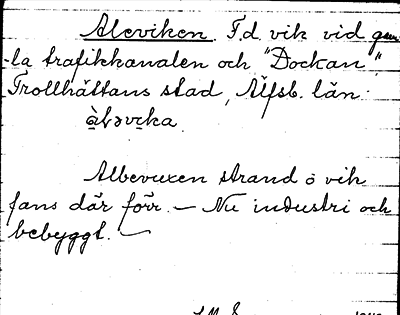 Aleviken. F.d. vik vid gam-
la trafikkanalen och "Dockan",
Trollhättans stad, Älfsb. län.
àlvəvɪka
Albevuxen strand o vik
fans där förr. — Nu industri och
bebyggt. —